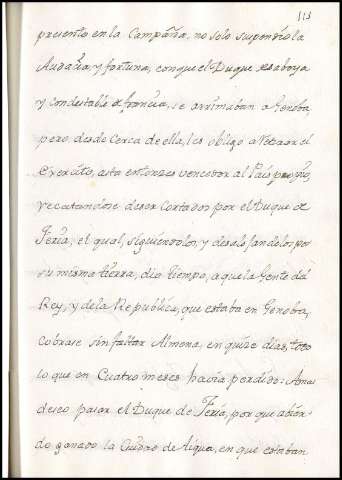 113
presento en la Campaña, no solo suspendio la
Audacia, y fortuna, con que el Duque de saboya
y condestable de francia, se arrimaban a Genoba,
pero desde cerca de ella, les obligo a Retirar el
Exercito, asta entonzes vencedor al Pais propio,
recatandose de ser Cortados por el Duque de
Feria; el qual, siguiendolos, y desalojandolos por
su misma tierra, dio tiempo, a que la Gente del
Rey, y de la Republica, que estaba en Genoba,
Cobrase sin faltar Almena, en quize dias, todo
lo que en Cuatro meses havia perdido:
deseo pasar el Duque de Feria, por que abien-
do ganado la Ciudad de Aiqua, en que estaban